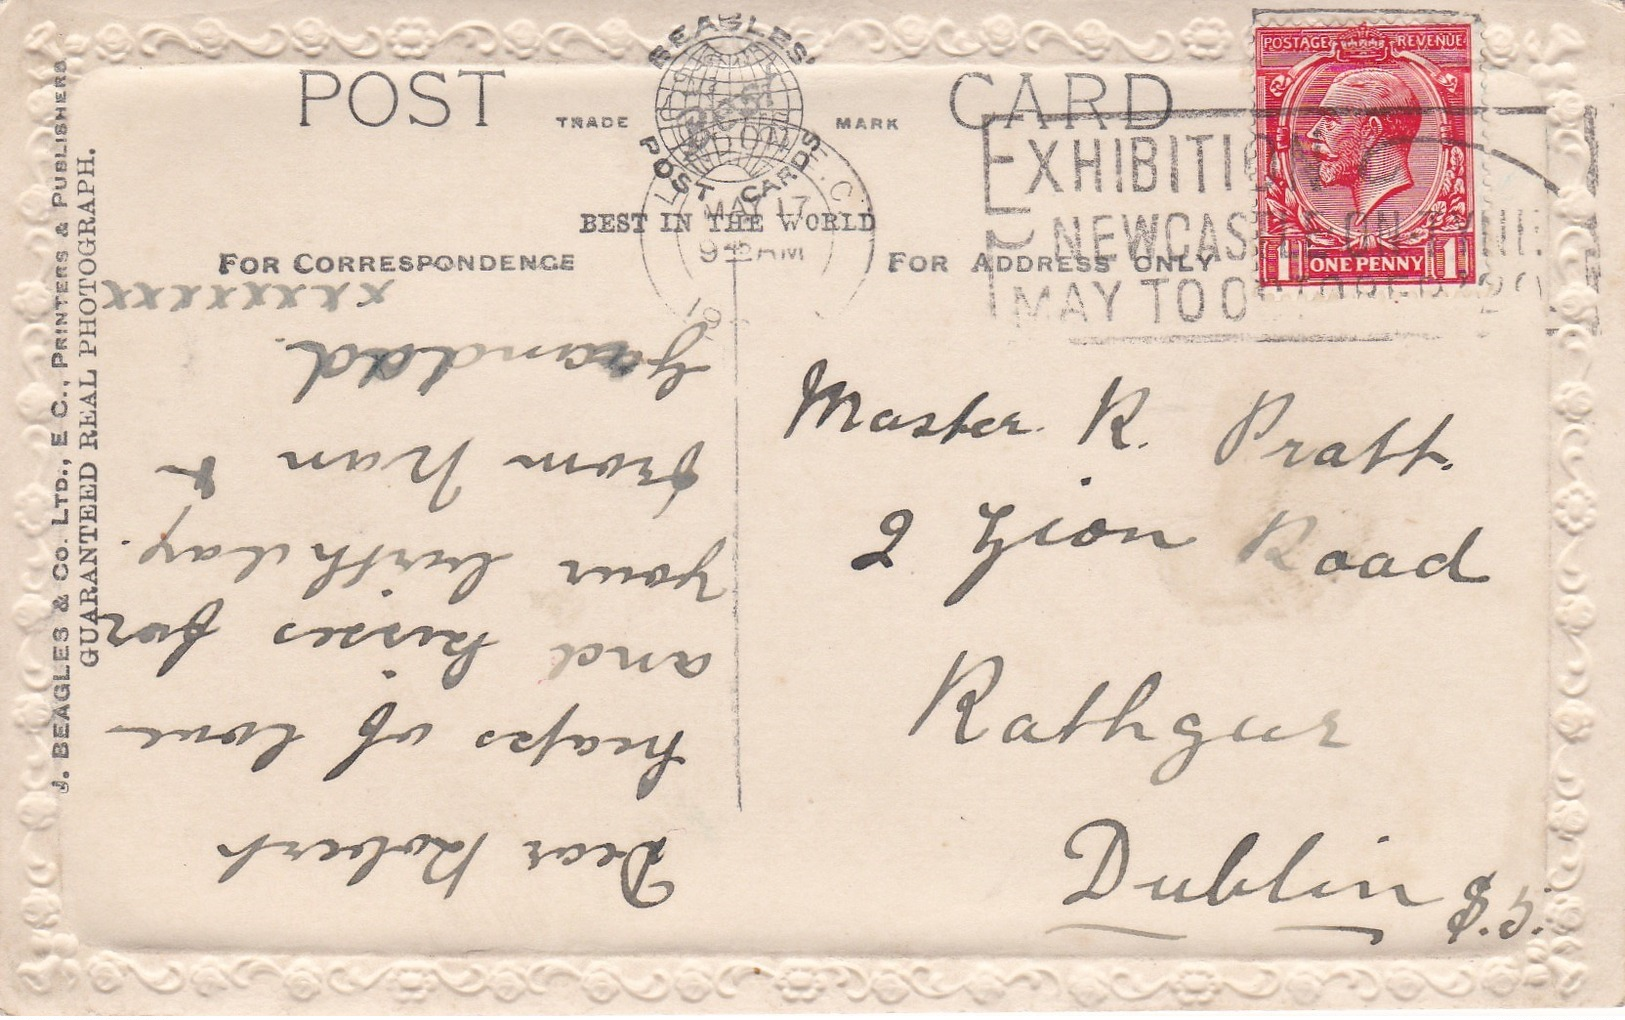 POST CARD
BEAGLES'
BEST
POST CARDS
TRADE MARK
BEST IN THE WORLD
FOR CORRESPONDENCE
FOR ADDRESS ONLY
LONDON. E.C.
MAY 17
9 AM
19
EXHIBITION
NEWCASTLE-ON-TYNE
MAY TO OCTOBER 1929
POSTAGE REVENUE
1 ONE PENNY 1
Dear Robert
heaps of love
and kisses for
your birthday.
from Nan &
Grandad.
xxxxxxxxx
Master R. Pratt.
2 Zion Road
Rathgar
Dublin
J. BEAGLES & CO. LTD., E C., PRINTERS & PUBLISHERS
GUARANTEED REAL PHOTOGRAPH.